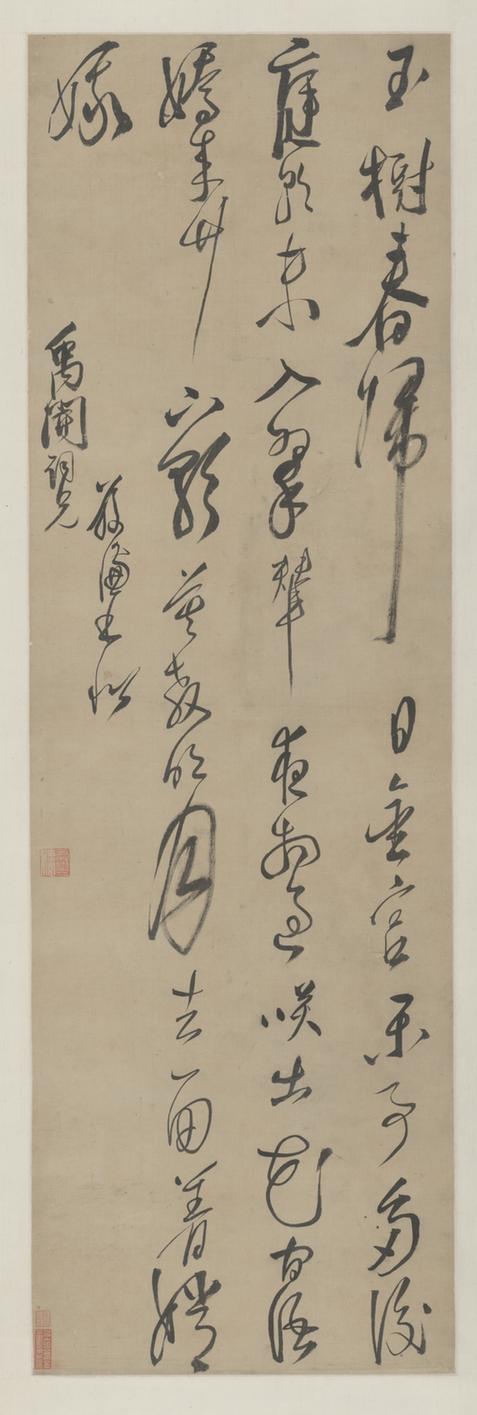 玉樹春歸日金宮樂事多後
庭朝未入翠輦夜相過咲出花間語
嬌來竹下歌莫教明月去留着嫦
娥
王
禹開詞兄